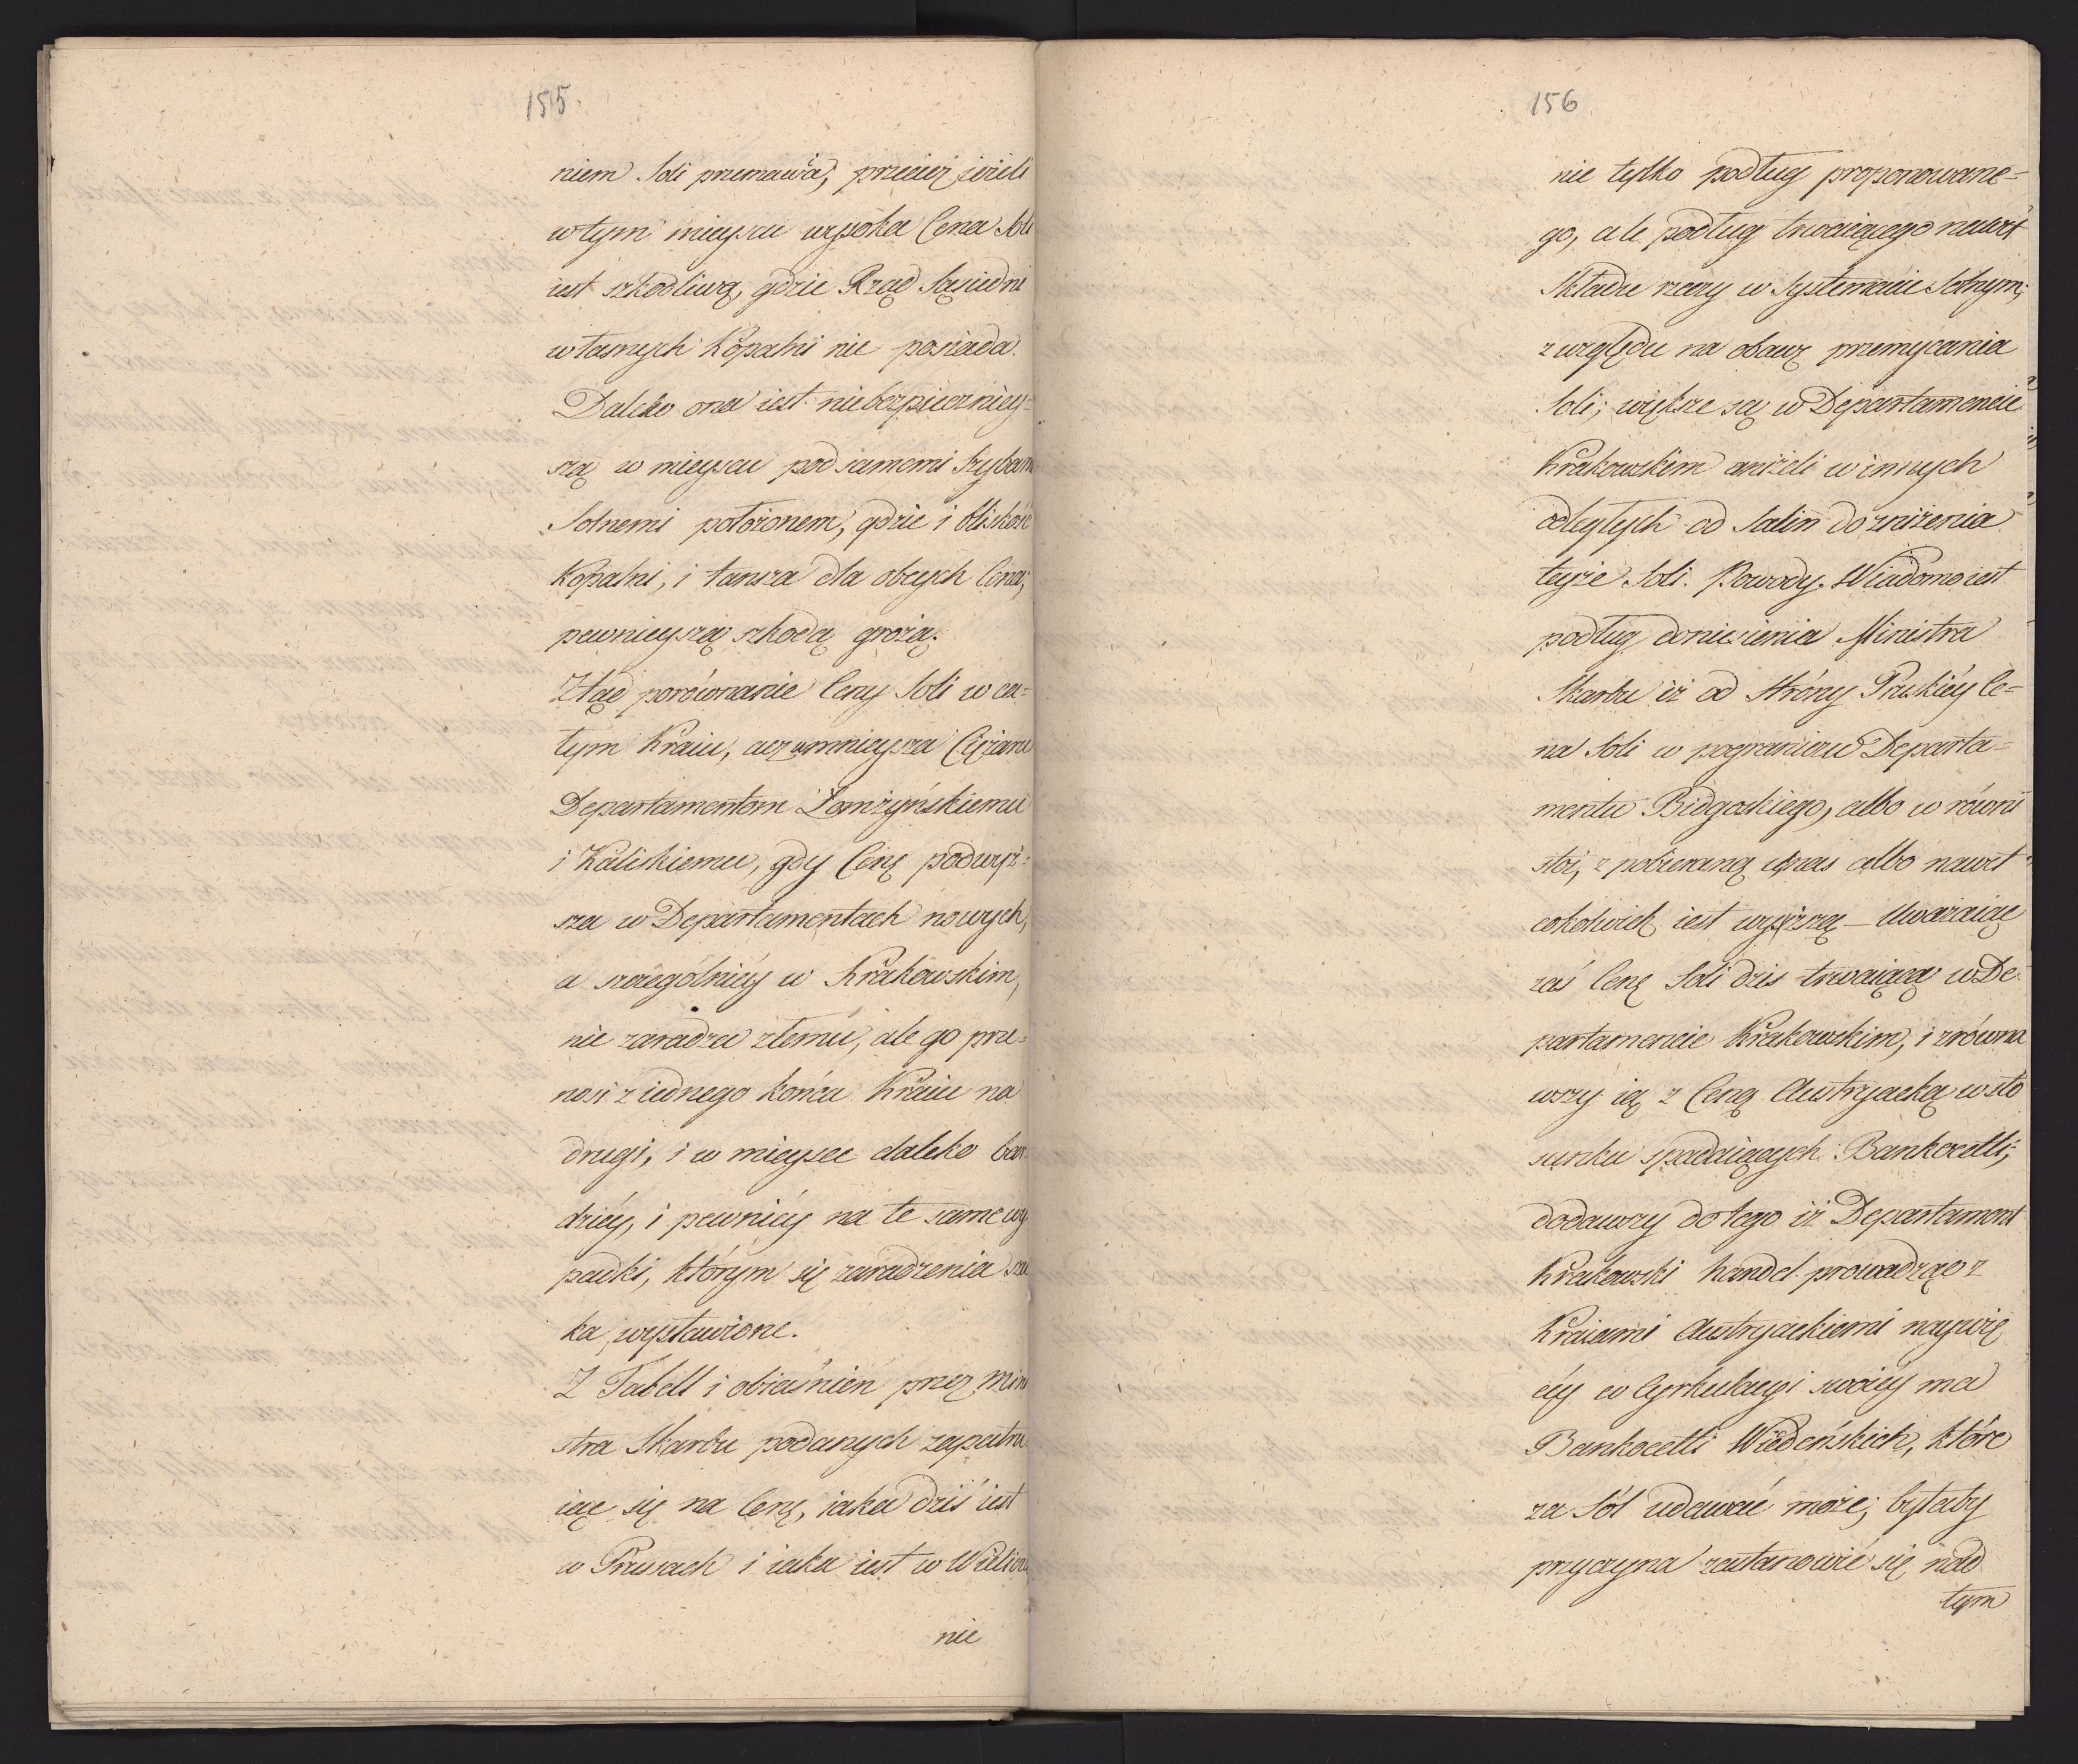 155
niem Soli przemawia, przecież ieżeli
w tym mieyscu wysoka Cena Soli
iest szkodliwą, gdzie Rząd Sąsiedni
własnych Kopalni nie posiada.
Daleko ona iest niebezpieczniey=
szą w mieyscu pod samemi Szybami
Solnemi położonem, gdzie i bliskość
Kopalni, i tansza dla obcych Cena,
pewnieyszą szkodą grożą.
Ztąd porównanie Ceny Soli w ca=
łym Kraiu, acz umnieysza Ciężaru
Departamentom Łomżyńskiemu
i Kaliskiemu, gdy Cenę podwyż=
sza w Departamentach nowych,
a szczególniéy w Krakowskim,
nie zaradza złemu, ale go prze=
nosi z iednego końca Kraiu na
drugi, i w mieysce daleko bar=
dziéy, i pewniéy na te same wy
padki, którym się zaradzenia szu
ka, wystawione.
Z Tabell i obiaśnień przez Mini
stra Skarbu podanych zapatru
iąc się na Cenę, iaka dziś iest
w Prusach i iaka iest w Wielicz
nie
156
nie tylko podług proponowane=
go, ale podług trwaiącego nawet
Składu rzeczy w Systemacie Solnym,
z względu na obawę przemycania
Soli, większe są w Departamencie
Krakowskim aniżeli w innych
odległych od Salin do zniżenia
teyże Soli. Powody. Wiadomo iest
podług doniesienia Ministra
Skarbu iż od Stróny Pruskiéy Ce=
na Soli w pograniczu Departa=
mentu Bidgoskiego, albo w równi
stoi, z pobieraną u nas albo nawet
cokolwiek iest wyższą – Uważaiąc
zaś Cenę Soli dziś trwaiącą w De
partamencie Krakowskim, i zrówna
wszy ią z Ceną Austryacką w sto
sunku spadaiących Bankocetli;
dodawszy do tego iż Departament
Krakowski handel prowadząc z
Kraiami Austryackiemi naywię
céy w Cyrkulacyi swoiéy ma
Bankocetli Wiedeńskich, które
za Sól udawać może, byłaby
przyczyna zastanowić się nad
tym